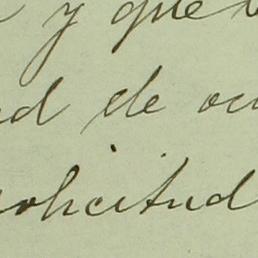 y que
de
solicitud